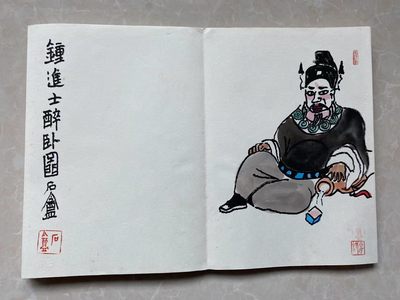 鍾進士醉卧圖石盦
石盦